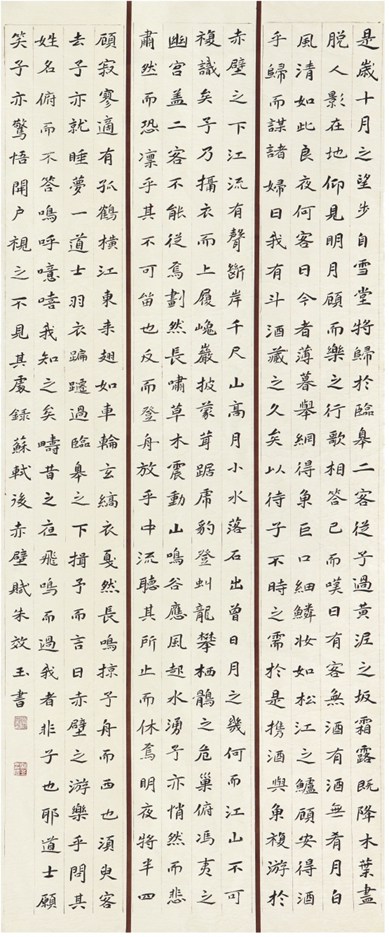 是歲十月之望步自雪堂將歸於臨皋二客從予過黃泥之坂霜露既降木葉盡
脫人影在地仰見明月顧而樂之行歌相答已而嘆曰有客無酒有酒無肴月白
風清如此良夜何客曰今者薄暮舉網得魚巨口細鱗妝如松江之鱸顧安得酒
乎歸而謀諸婦曰我有斗酒藏之久矣以待子不時之需於是携酒與魚複游於
赤壁之下江流有聲斷岸千尺山高月小水落石出曾日月之幾何而江山不可
複識矣予乃攝衣而上履巉巖披蒙茸踞虎豹登虯龍攀栖鶻之危巢俯馮夷之
幽宮盖二客不能從焉劃然長嘯草木震動山鳴谷應風起水湧予亦悄然而悲
肅然而恐凜乎其不可留也反而登舟放乎中流聽其所止而休焉明夜將半四
顧寂寥適有孤鶴橫江東来翅如車輪玄縞衣戛然長鳴掠予舟而西也須臾客
去予亦就睡夢一道士羽衣蹁躚過臨皋之下揖予而言曰赤壁之游樂乎問其
姓名俯而不答嗚呼噫嘻我知之矣疇昔之夜飛鳴而過我者非子也耶道士顧
笑予亦驚悟開户視之不見其處錄蘇軾後赤壁賦朱效玉書